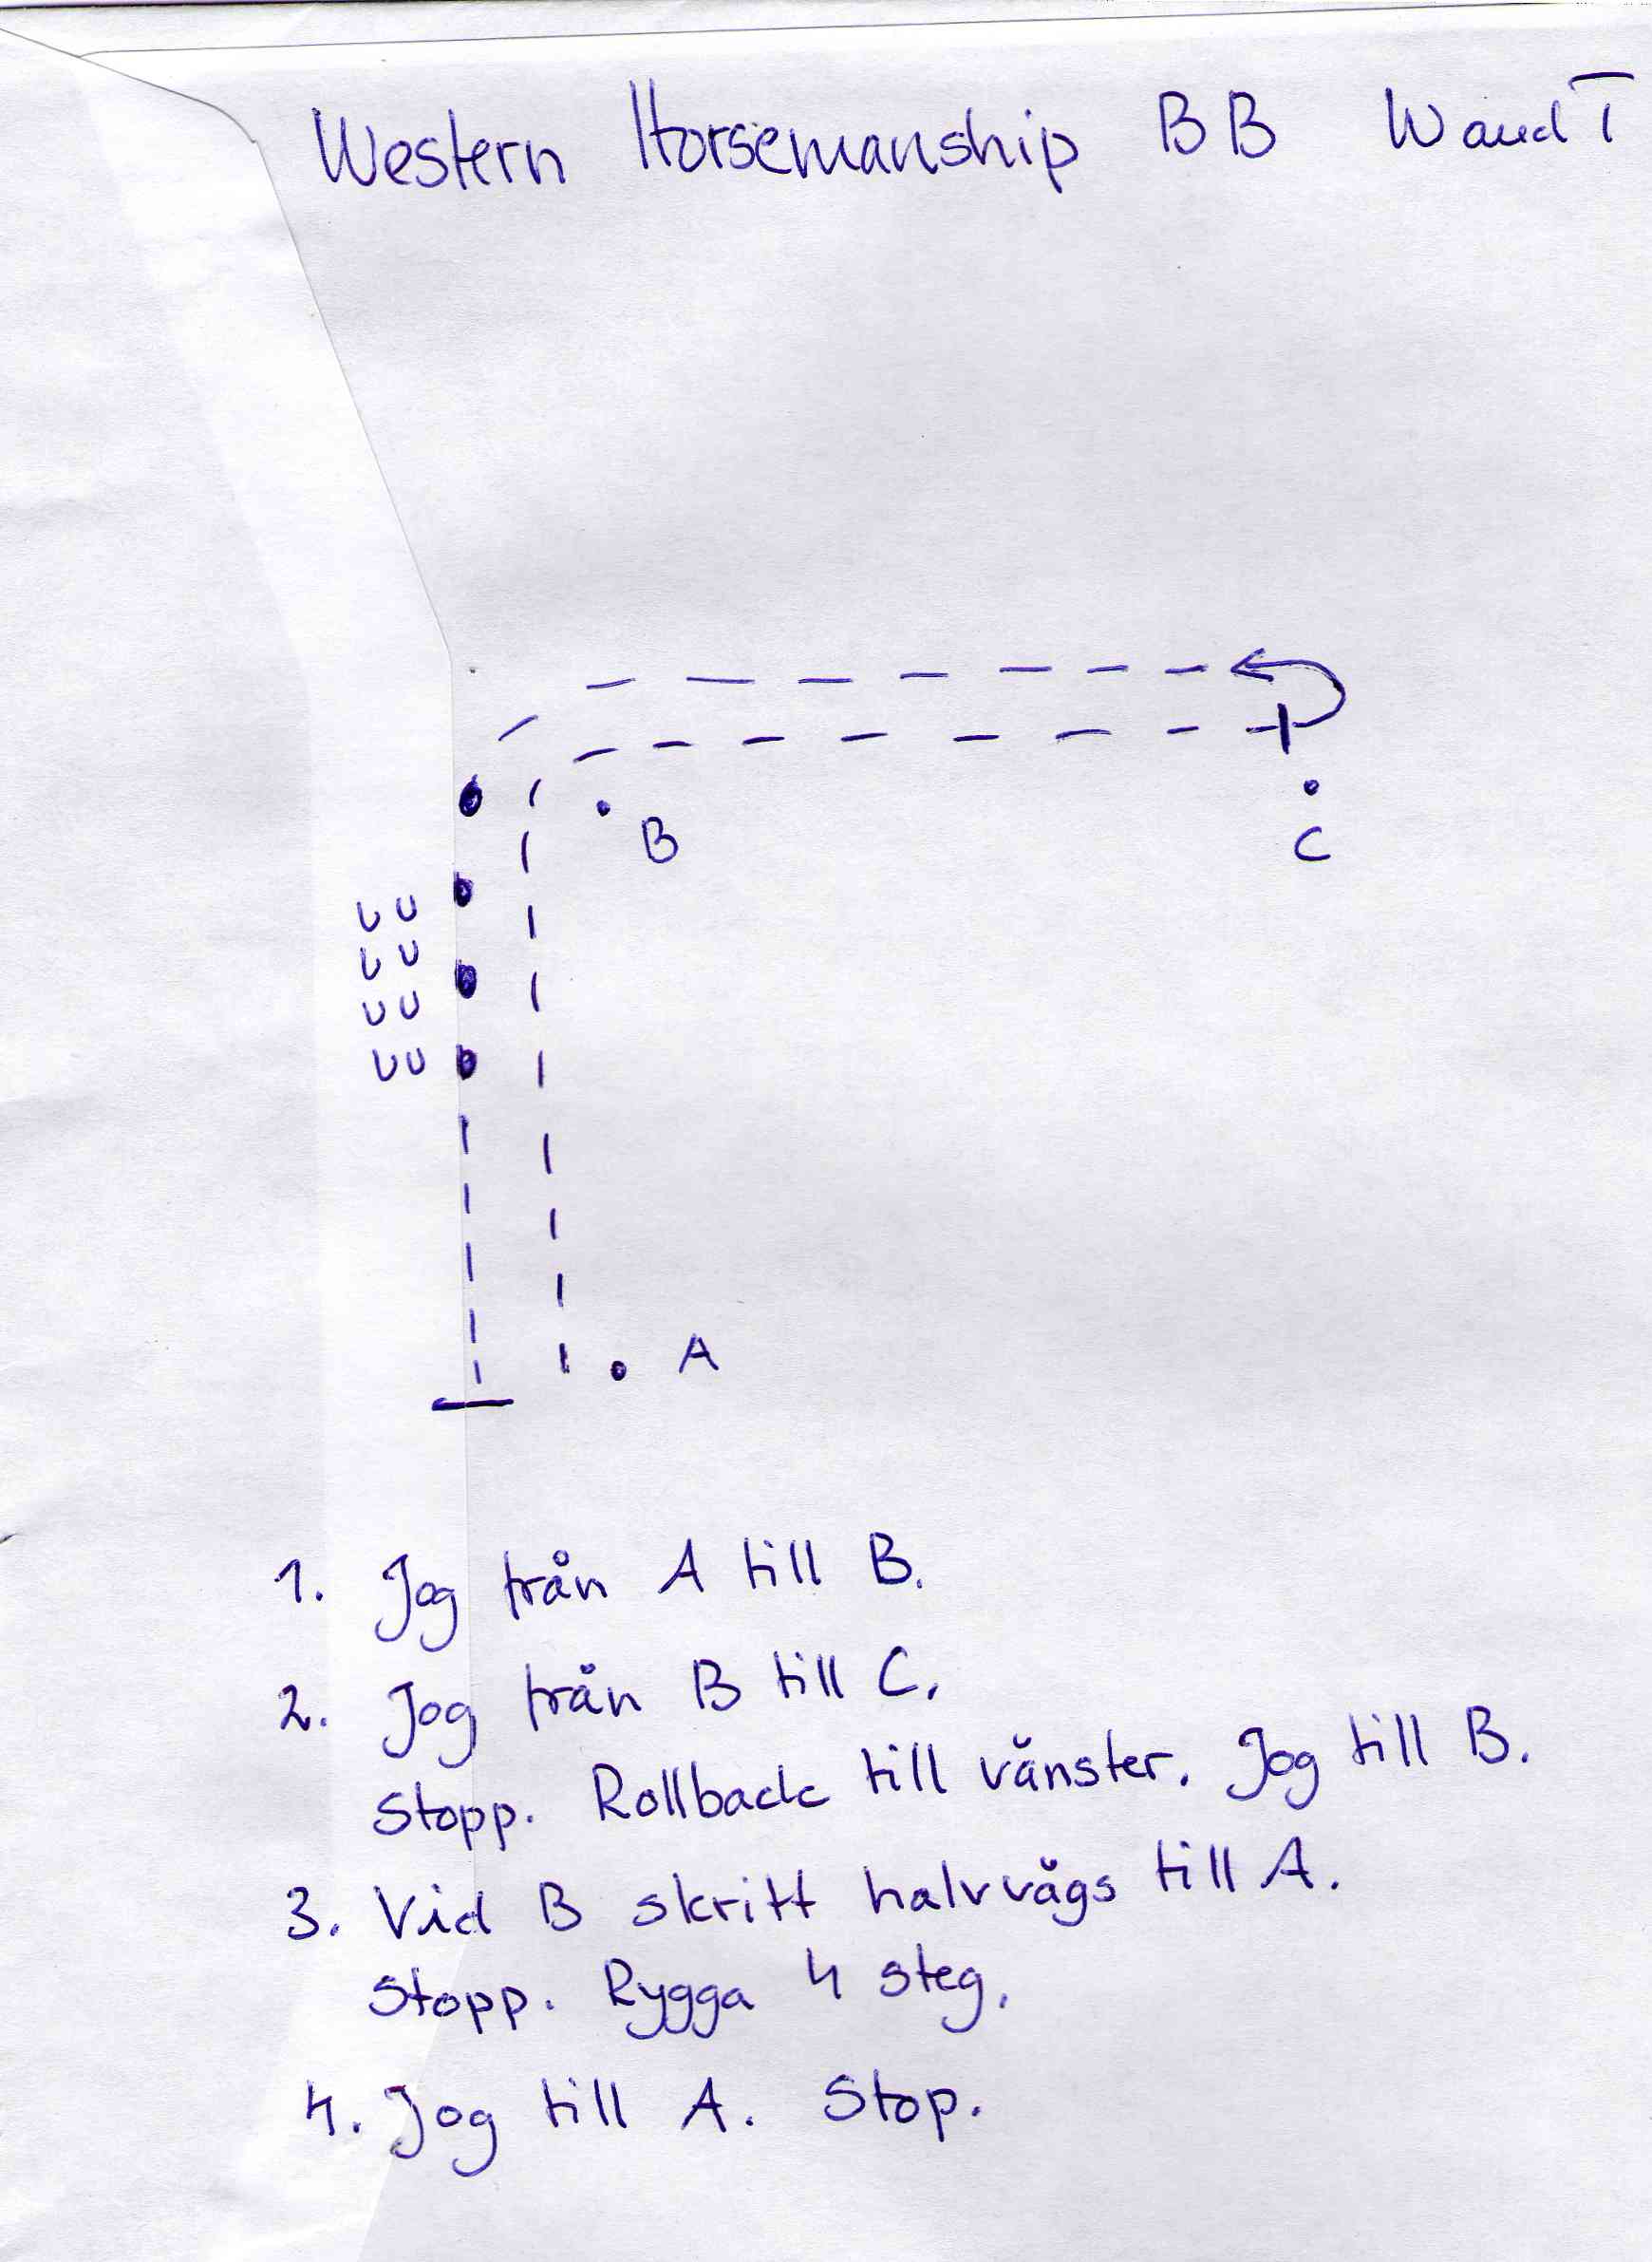 Western Horsemanship BB W and T
B
C
A
1. Jog från A till B.
2. Jog från B till C.
Stopp. Rollback till vänster. Jog till B.
3. Vid B skritt halvvägs till A.
Stopp. Rygga 4 steg.
4. Jog till A. Stop.